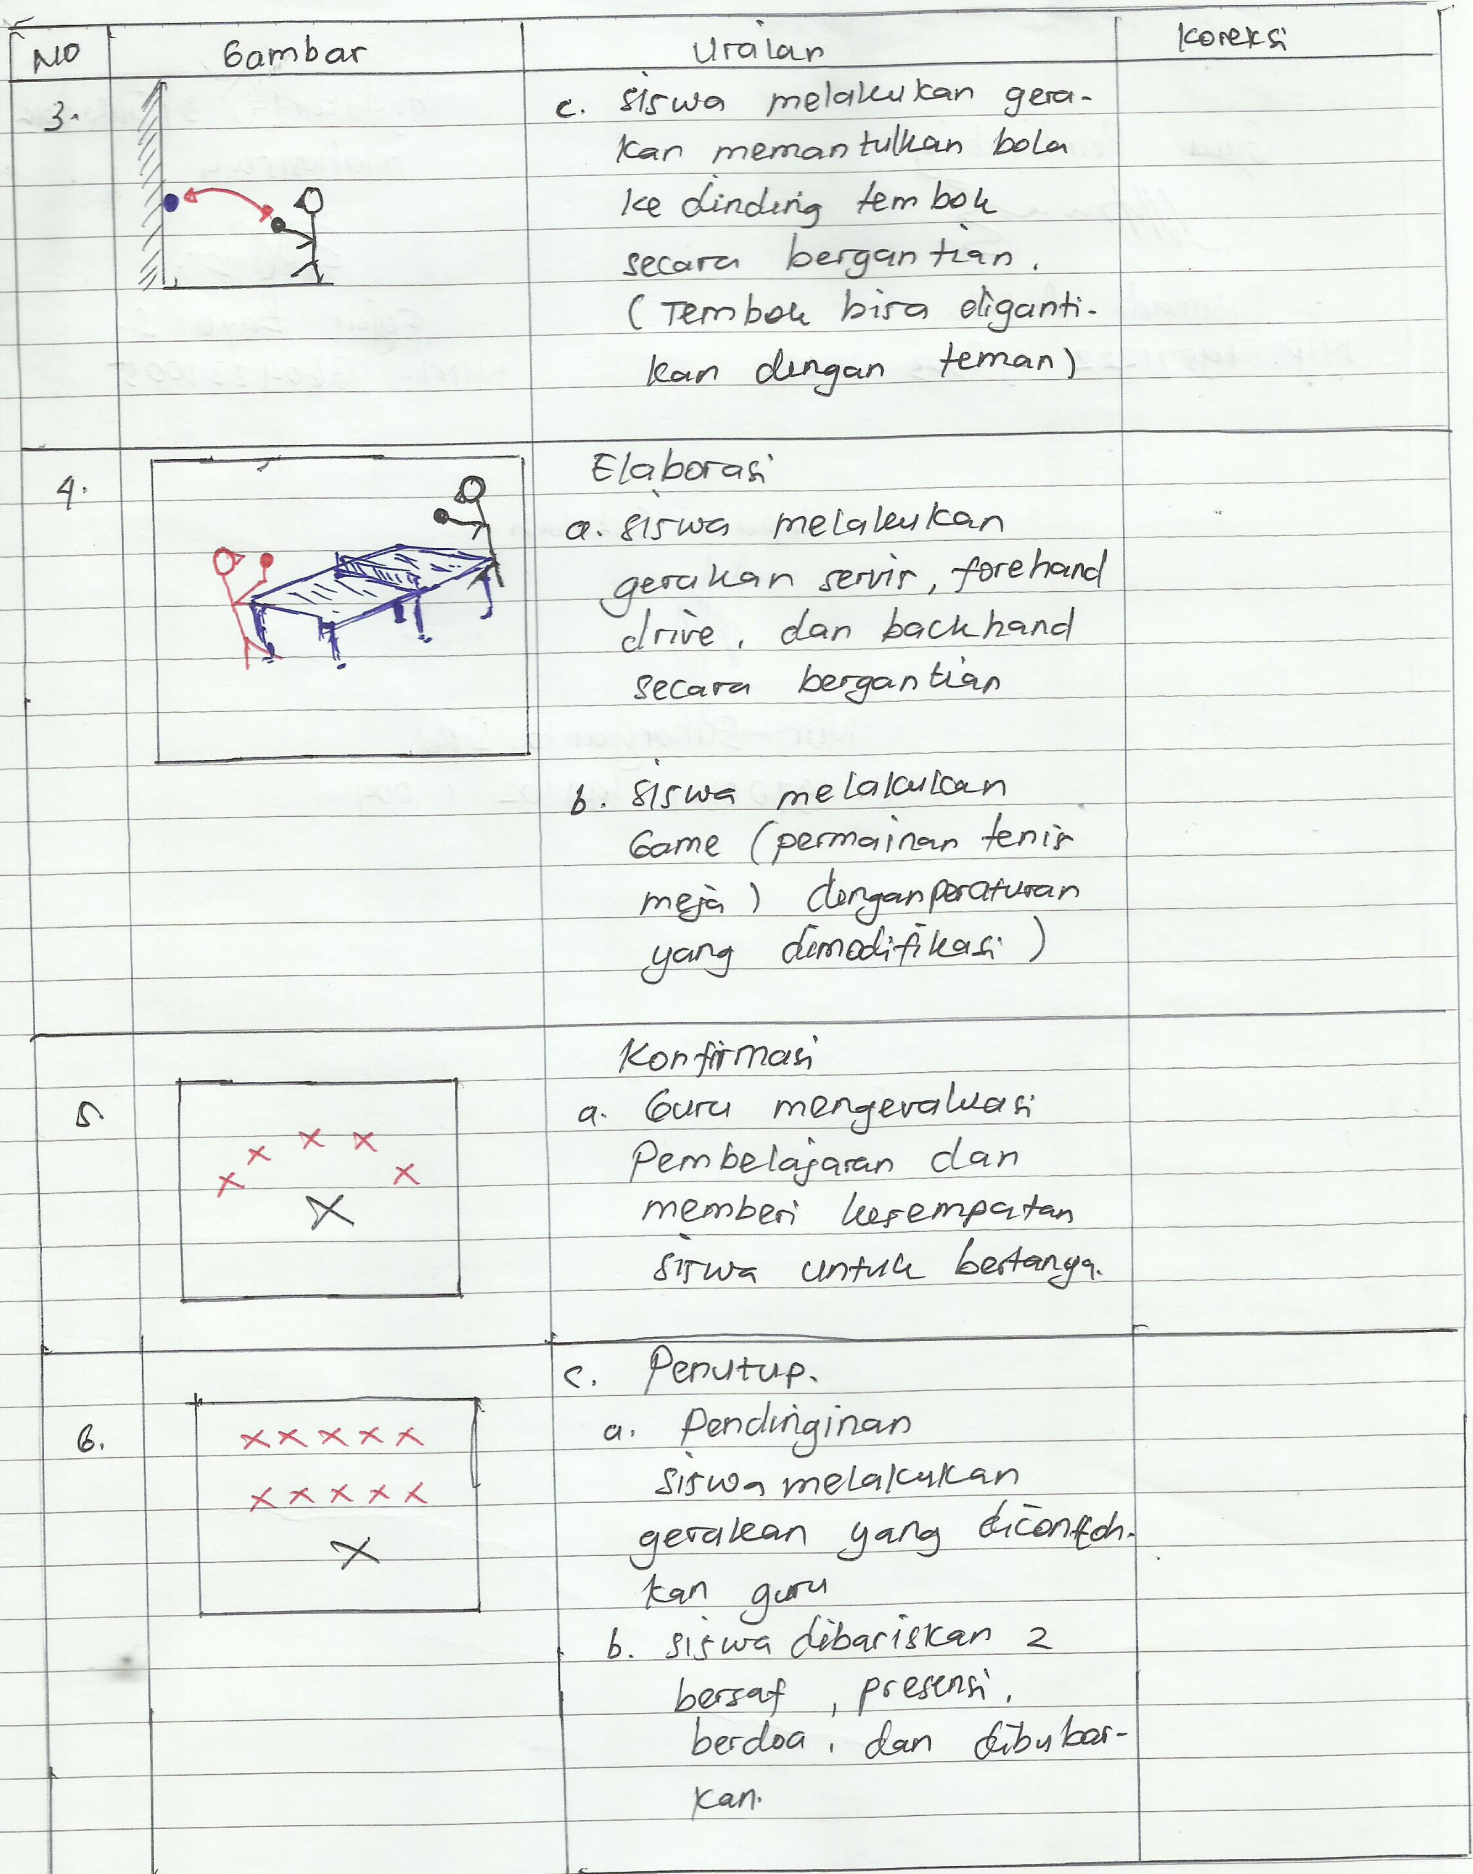 NO Gambar Uraian Koreksi
3. c. siswa melakukan gera-
kan memantulkan bola
ke dinding tembok
secara bergantian.
(Tembok bisa diganti-
kan dengan teman)
4. Elaborasi
a. siswa melakukan
gerakan servis, forehand
drive, dan backhand
secara bergantian
b. siswa melakukan
Game (permainan tenis
meja) dengan peraturan
yang dimodifikasi)
5. Konfirmasi
a. Guru mengevaluasi
Pembelajaran dan
memberi kesempatan
siswa untuk bertanya.
6. c. Penutup.
a. Pendinginan
siswa melakukan
gerakan yang dicontoh-
kan guru
b. siswa dibariskan 2
bersaf, presensi,
berdoa, dan dibubar-
kan.